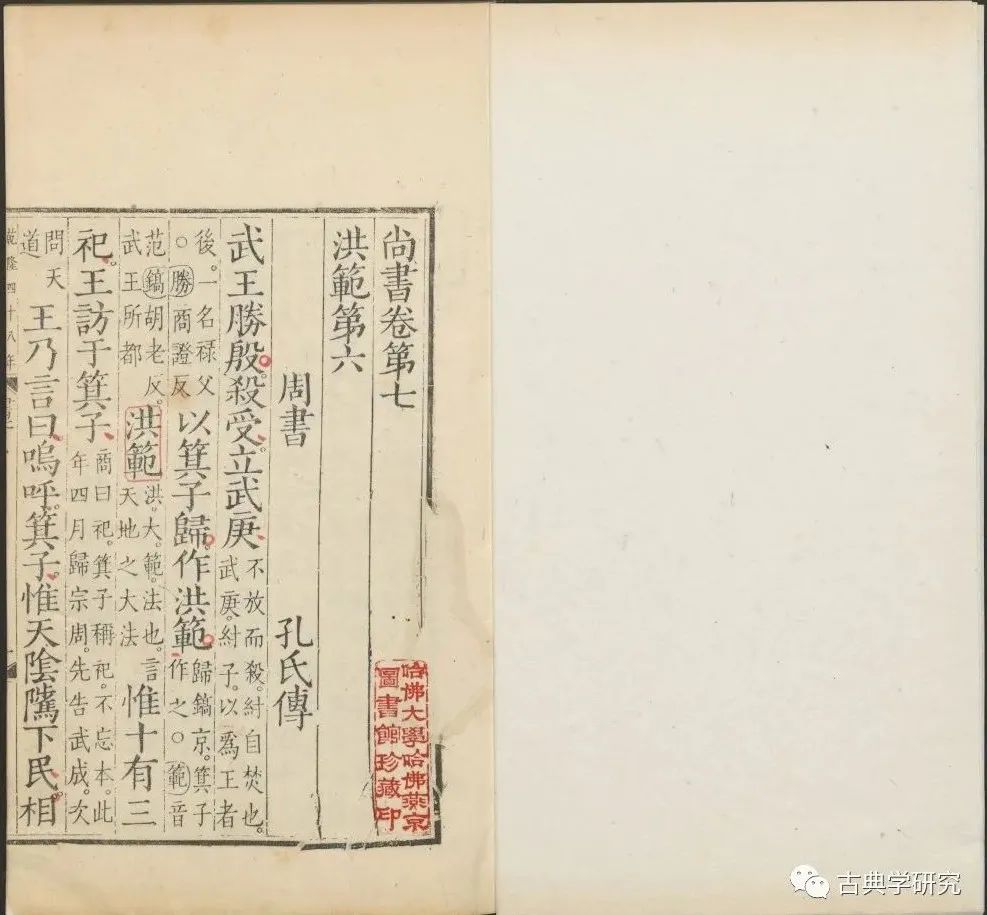 尚書卷第七
洪範第六
周書 孔氏傳
武王勝殷。殺受、立武庚、不放而殺。紂自焚也。武庚。紂子。以爲王者
後。一名禄父○勝商證反以箕子歸。作洪範。歸鎬京。箕子作之○範音
范鎬胡老反。武王所都洪範洪。大。範。法也。言天地之大法惟十有三
祀。王訪于箕子、商曰祀。箕子稱祀。不忘本。此年四月歸宗周。先告武成。次
問天道王乃言曰、嗚呼。箕子。惟天陰騭下民。相
乾隆四十八年
哈佛大學哈佛燕京
圖書館珍藏印
古典学研究